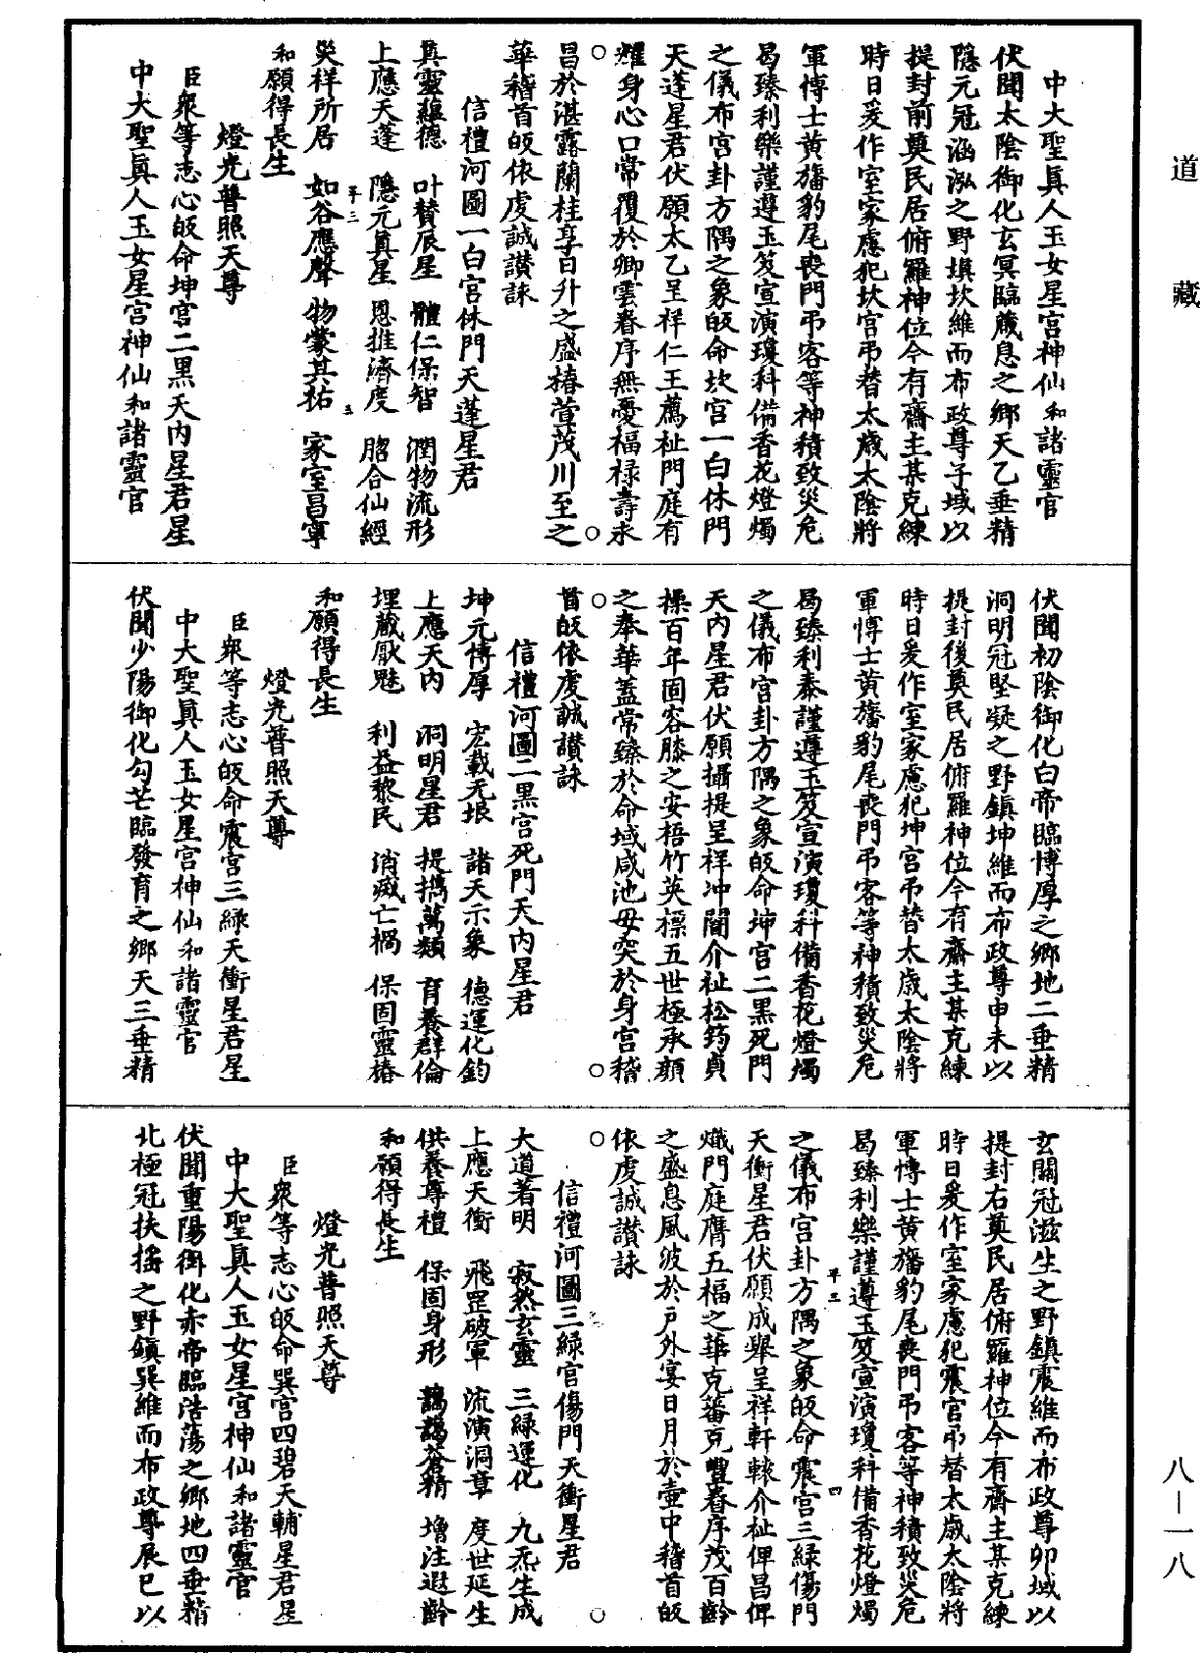 道藏
中大聖眞人玉女星宮神仙和諸靈官
伏聞太陰御化玄冥臨藏息之鄉天乙垂精
隱元冠涵泓之野填坎維而布政尊子域以
提封前奠民居俯羅神位今有齋主某克練
時日爰作室家慮犯坎宮弔替太歲太陰將
軍博士黃旛豹尾喪門弔客等神積致災危
曷臻利樂謹遵玉笈宣演瓊科備香花燈燭
之儀布宮卦方隅之象皈命坎宮一白休門
天蓬星君伏願太乙呈祥仁王薦祉門庭有
耀身心口常覆於卿雲眷序無憂福祿壽永
昌於湛露蘭桂享日升之盛椿萱茂川至之
華稽首皈依虔誠讃詠
信禮河圖一白宮休門天蓬星君
眞靈蘊德 叶贊辰星 體仁保智 潤物流形
上應天蓬 隱元眞星 恩推濟度 𦚾合仙經
災祥所居 如谷應聲 物蒙其祐 家室昌寧
和願得長生
燈光普照天尊
臣衆等志心皈命坤宮二黑天內星君星
中大聖眞人玉女星宮神仙和諸靈官
伏聞初陰御化白帝臨博厚之鄉地二垂精
洞明冠堅凝之野鎮坤維而布政尊申未以
提封後奠民居俯羅神位今有齋主某克練
時日爰作室家慮犯坤宮弔替太歲太陰將
軍博士黃旛豹尾喪門弔客等神積致災危
曷臻利泰謹遵玉笈宣演瓊科備香花燈燭
之儀布宮卦方隅之象皈命坤宮二黑死門
天內星君伏願攝提呈祥冲闇介祉松筠貞
操百年固容膝之安梧竹英標五世極承顏
之奉華蓋常臻於命域咸池毋突於身宮稽
首皈依虔誠讃詠
信禮河圖二黑宮死門天內星君
坤元博厚 宏載无垠 諸天示象 德運化鈞
上應天內 洞明星君 提攜萬類 育養群倫
埋藏厭魅 利益黎民 消滅亡禍 保固靈椿
和願得長生
燈光普照天尊
臣衆等志心皈命震宮三綠天衝星君星
中大聖眞人玉女星宮神仙和諸靈官
伏聞少陽御化勾芒臨發育之鄉天三垂精
玄關冠滋生之野鎮震維而布政尊卯域以
提封右奠民居俯羅神位今有齋主某克練
時日爰作室家慮犯震宮弔替太歲太陰將
軍博士黃旛豹尾喪門弔客等神積致災危
曷臻利樂謹遵玉笈宣演瓊科備香花燈燭
之儀布宮卦方隅之象皈命震宮三綠傷門
天衝星君伏願成舉呈祥軒轅介祉俾昌俾
熾門庭膺五福之華克蕃克豐眷序茂百齡
之盛息風波於戶外宴日月於壷中稽首皈
依虔誠讃詠
信禮河圖三綠宮傷門天衝星君
大道著明 寂然玄靈 三綠運化 九炁生成
上應天衝 飛罡破軍 流演洞章 度世延生
供養尊禮 保固身形 靄靄蒼精 增注遐齡
和願得長生
燈光普照天尊
臣衆等志心皈命巽宮四碧天輔星君星
中大聖眞人玉女星宮神仙和諸靈官
伏聞重陽御化赤帝臨浩蕩之鄉地四垂精
北極冠扶搖之野鎮巽維而布政尊辰巳以
八—一八